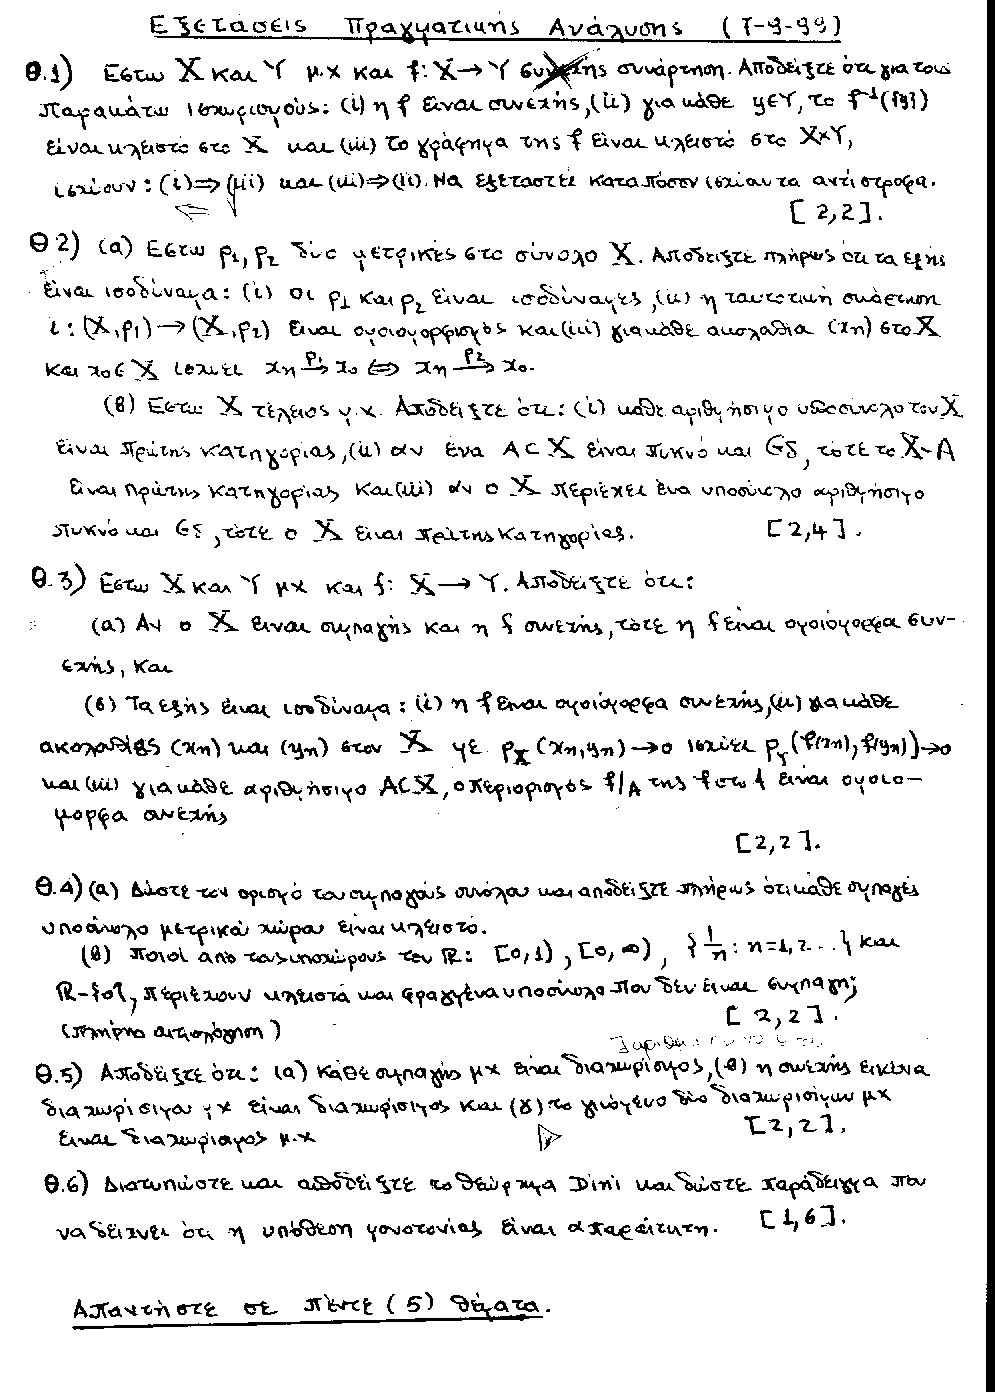 Εξετάσεις Πραγματικής Ανάλυσης (7-9-99)
Θ.1) Εστω X και Y μ.χ και f: X→Y συνάρτηση. Αποδείξτε ότι για τους
παρακάτω ισχυρισμούς: (i) η f είναι συνεχής, (ii) για κάθε y∈Y, το f⁻¹({y})
είναι κλειστό στο X και (iii) το γράφημα της f είναι κλειστό στο X×Y,
ισχύουν: (i)⇒(iii) και (iii)⇒(ii). Να εξεταστεί κατά πόσον ισχύουν τα αντίστροφα.
[2,2].
Θ2) (α) Εστω ρ₁, ρ₂ δύο μετρικές στο σύνολο X. Αποδείξτε πλήρως ότι τα εξής
είναι ισοδύναμα: (i) οι ρ₁ και ρ₂ είναι ισοδύναμες, (ii) η ταυτοτική συνάρτηση
i: (X,ρ₁)→(X,ρ₂) είναι ομοιομορφισμός και (iii) για κάθε ακολουθία (xn) στο X
και x₀∈X ισχύει xn →ρ₁ x₀ ⇔ xn →ρ₂ x₀.
(β) Εστω X τέλειος μ.χ. Αποδείξτε ότι: (i) κάθε αριθμήσιμο υποσύνολο του X
είναι πρώτης κατηγορίας, (ii) αν ένα A⊂X είναι πυκνό και Gδ, τότε το X-A
είναι πρώτης κατηγορίας και (iii) αν ο X περιέχει ένα υποσύνολο αριθμήσιμο
πυκνό και Gδ, τότε ο X είναι πρώτης κατηγορίας. [2,4].
Θ.3) Εστω X και Y μχ και f: X→Y. Αποδείξτε ότι:
(α) Αν ο X είναι συμπαγής και η f συνεχής, τότε η f είναι ομοιόμορφα συν-
εχής, και
(β) Τα εξής είναι ισοδύναμα: (i) η f είναι ομοιόμορφα συνεχής, (ii) για κάθε
ακολουθίες (xn) και (yn) στον X με ρX(xn,yn)→0 ισχύει ρY(f(xn),f(yn))→0
και (iii) για κάθε αριθμήσιμο A⊂X, ο περιορισμός f/A της f στο A είναι ομοιο-
μορφα συνεχής
[2,2].
Θ.4) (α) Δώστε τον ορισμό του συμπαγούς συνόλου και αποδείξτε πλήρως ότι κάθε συμπαγές
υποσύνολο μετρικού χώρου είναι κλειστό.
(β) Ποιοί από τους υποχώρους του R: [0,1), [0,∞), {1/n: n=1,2...} και
R-{0}, περιέχουν κλειστά και φραγμένα υποσύνολα που δεν είναι συμπαγή;
(πλήρης αιτιολόγηση) [2,2].
Θ.5) Αποδείξτε ότι: (α) Κάθε συμπαγής μχ είναι διαχωρίσιμος, (β) η συνεχής εικόνα
διαχωρίσιμου μχ είναι διαχωρίσιμος και (γ) το γινόμενο δύο διαχωρίσιμων μχ
είναι διαχωρίσιμος μ.χ [2,2].
Θ.6) Διατυπώστε και αποδείξτε το θεώρημα Dini και δώστε παράδειγμα που
να δείχνει ότι η υπόθεση μονοτονίας είναι απαραίτητη. [1,6].
Απαντήστε σε πέντε (5) θέματα.